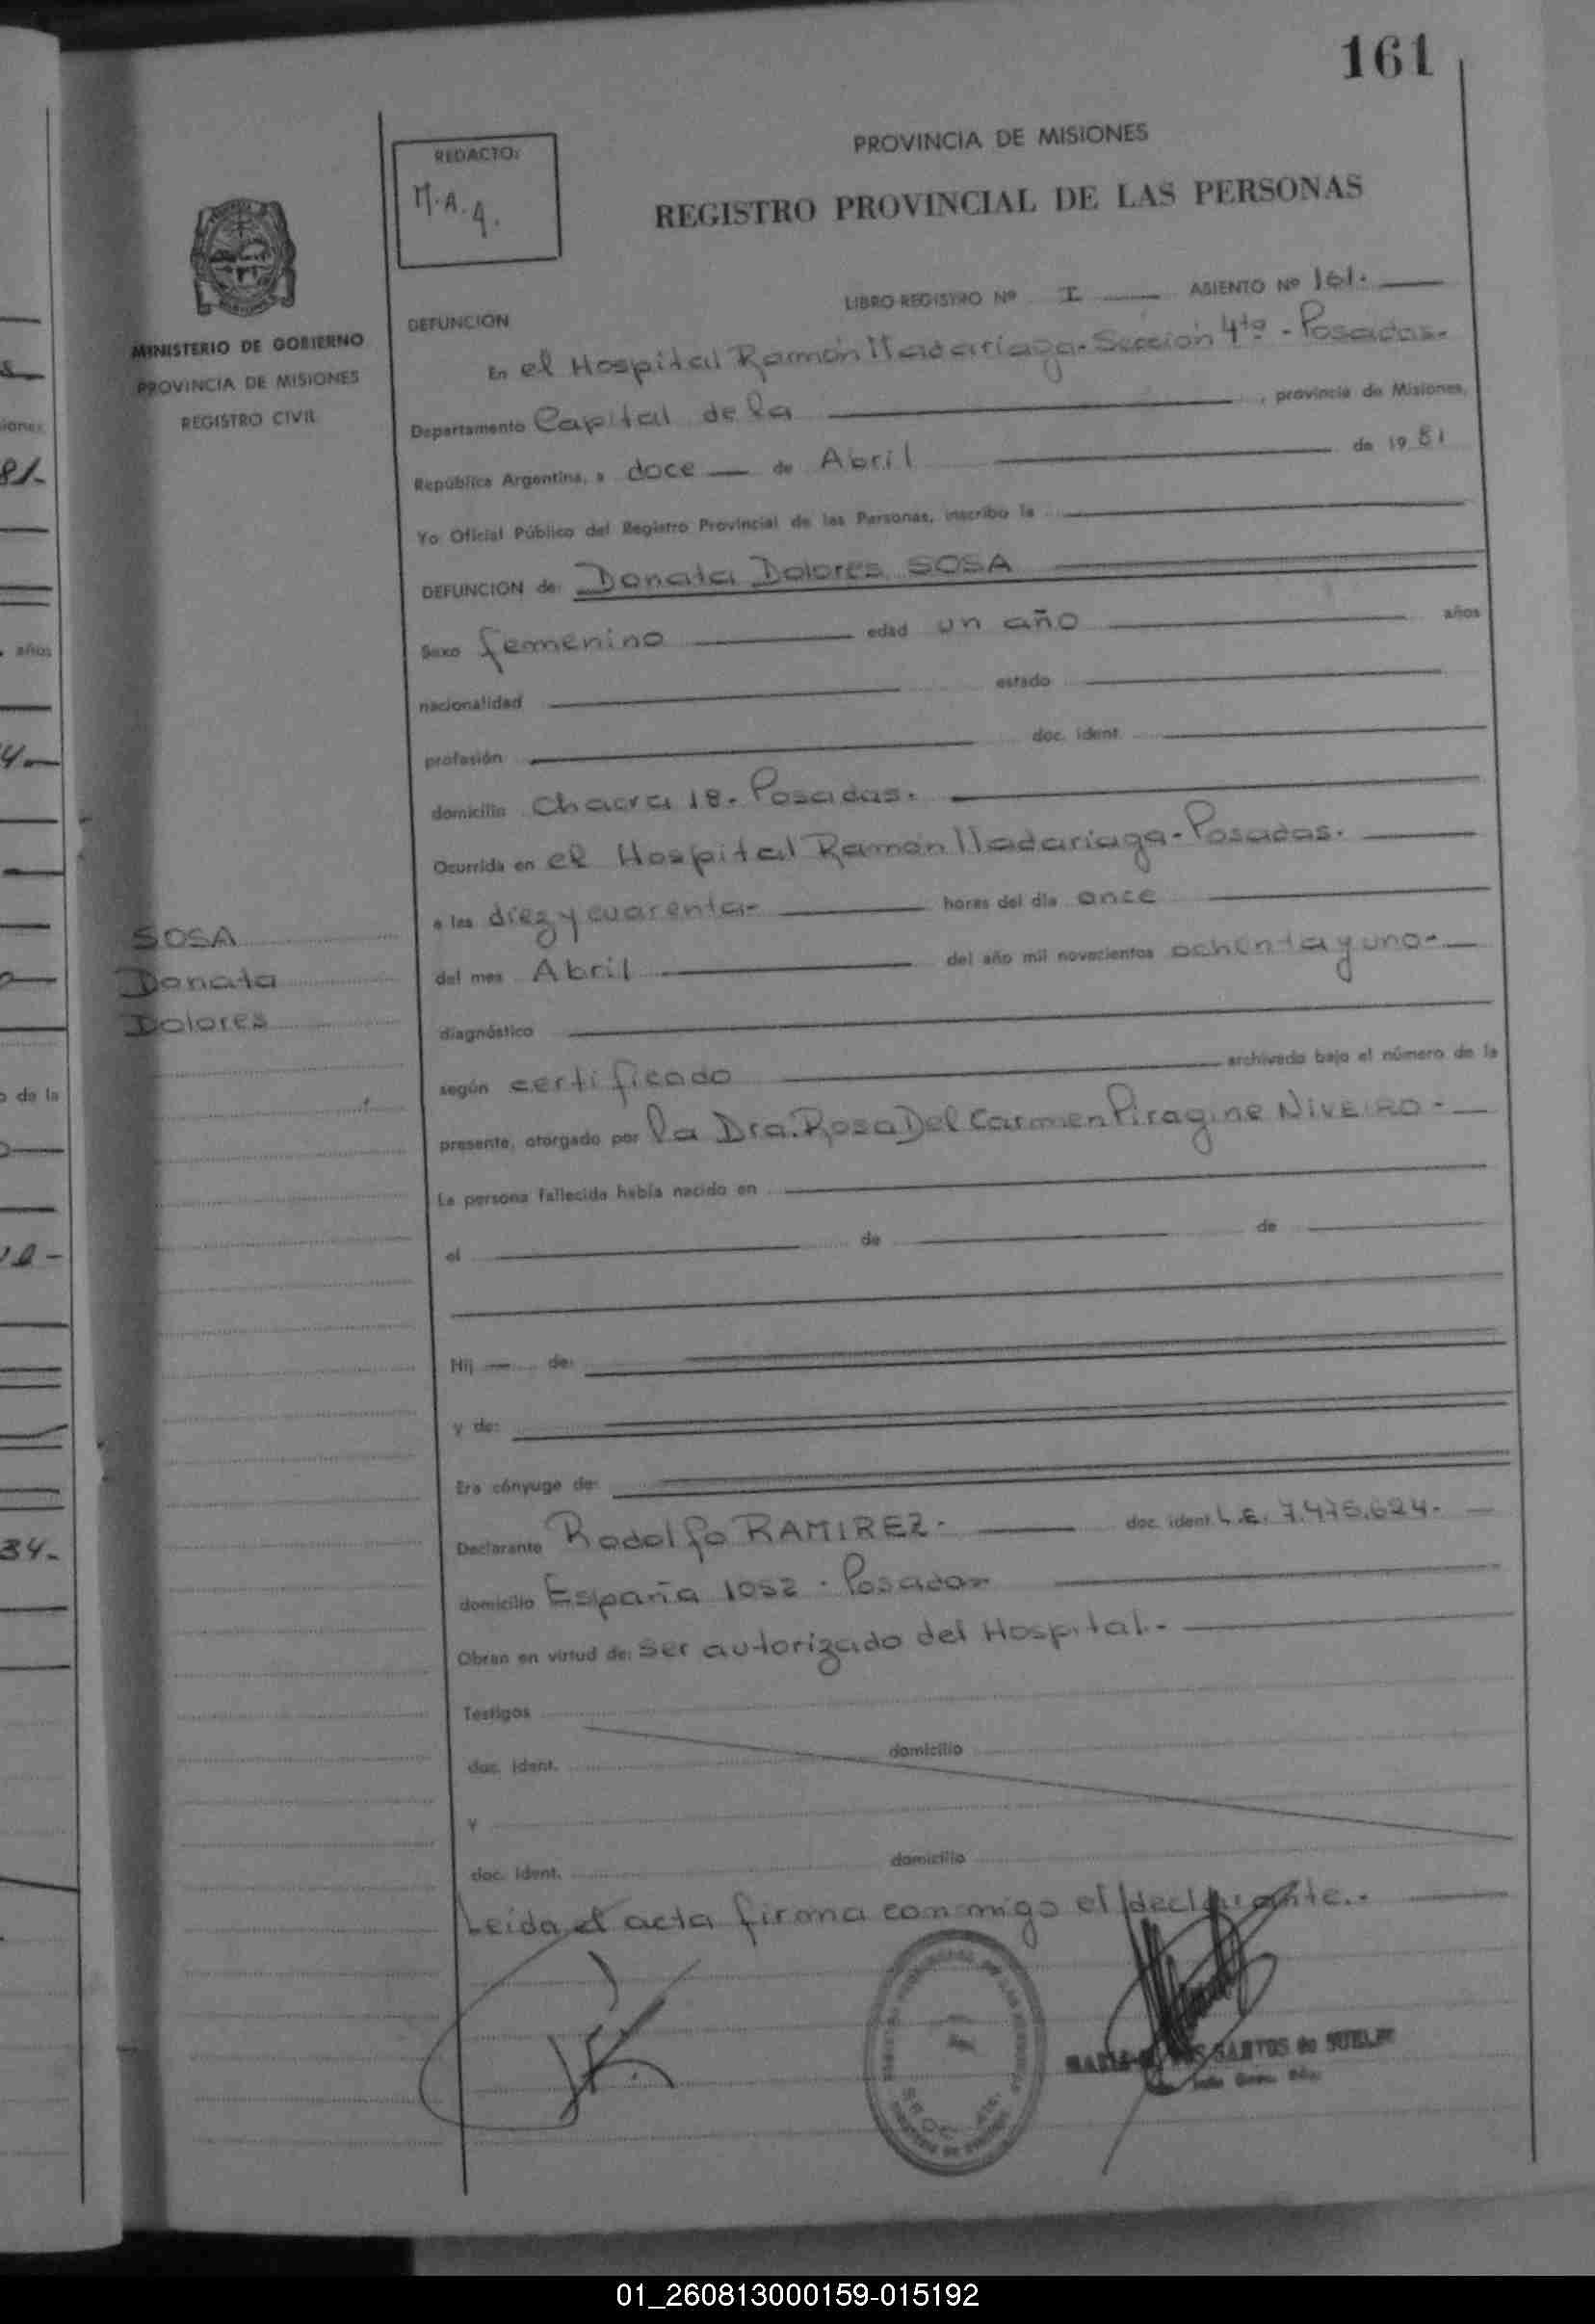 161
PROVINCIA DE MISIONES
REGISTRO PROVINCIAL DE LAS PERSONAS
REDACTO:
M.A.q.
MINISTERIO DE GOBIERNO
PROVINCIA DE MISIONES
REGISTRO CIVIL
LIBRO-REGISTRO Nº I ASIENTO Nº 161.
DEFUNCION
En el Hospital Ramón Madariaga-Sección 4ta - Posadas.
Departamento Capital de la , provincia de Misiones,
República Argentina, a doce de Abril de 1981
Yo Oficial Público del Registro Provincial de las Personas, inscribo la
DEFUNCION de: Donata Dolores SOSA
Sexo femenino edad un año años
nacionalidad estado
profesión doc. ident.
domicilio Chacra 18. Posadas.
Ocurrida en el Hospital Ramón Madariaga-Posadas.
a las diez y cuarenta- horas del día once
del mes Abril del año mil novecientos ochenta y uno-
diagnóstico
según certificado archivado bajo el número de la
presente, otorgado por la Dra. Rosa Del Carmen Piragine NIVEIRO-
La persona fallecida había nacido en
el de de
Hij de:
y de:
Era cónyuge de:
Declarante Rodolfo RAMIREZ- doc. ident. L.E. 7.475.624-
domicilio España 1052 - Posadas
Obran en virtud de: ser autorizado del Hospital.-
Testigos
doc. ident. domicilio
y
doc. ident. domicilio
Leída el acta firma conmigo el declarante.-
SOSA
Donata
Dolores
SANTOS de
años
81-
años
4-
o de la
34-
01_260813000159-015192